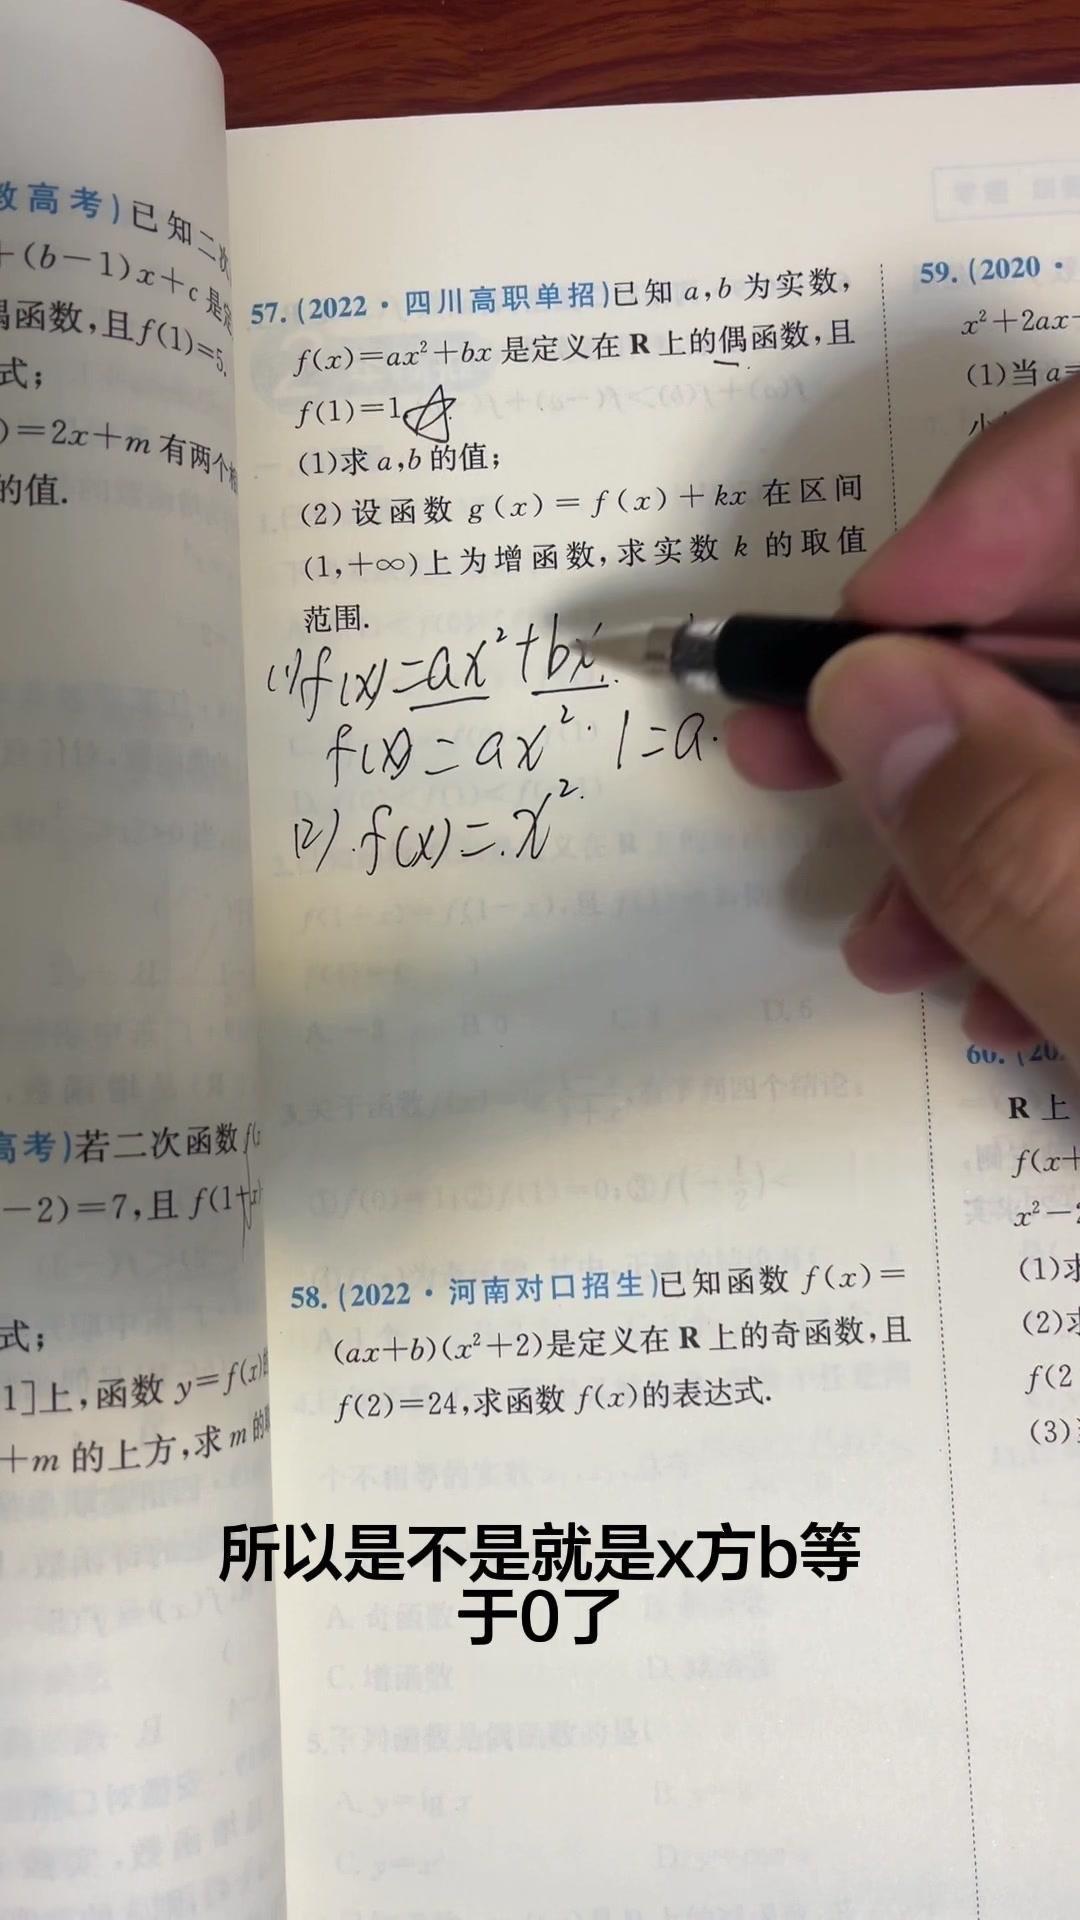 教高考)已知二次
+(b-1)x+c是定
偶函数,且f(1)=5.
式;
)=2x+m有两个相
的值.
高考)若二次函数f(x
-2)=7,且f(1+x)
式;
1]上,函数y=f(x)的
+m的上方,求m的
57.(2022·四川高职单招)已知a,b为实数,
f(x)=ax²+bx是定义在R上的偶函数,且
f(1)=1.
(1)求a,b的值;
(2)设函数g(x)=f(x)+kx在区间
(1,+∞)上为增函数,求实数k的取值
范围.
(1)f(x)=ax²+bx.
f(x)=ax². 1=a.
(2).f(x)=.x².
58.(2022·河南对口招生)已知函数f(x)=
(ax+b)(x²+2)是定义在R上的奇函数,且
f(2)=24,求函数f(x)的表达式.
59.(2020·
x²+2ax-
(1)当a=
60.(20
R上
f(x+
x²-2
(1)求
(2)求
f(2
(3)
所以是不是就是x方b等
于0了